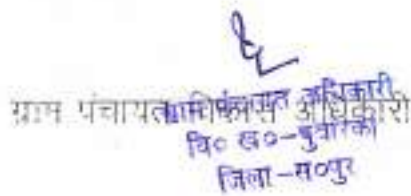 ग्राम पंचायत विकास अधिकारी
ग्राम पंचायत अधिकारी
वि० ख०-पुवांरका
जिला-स०पुर